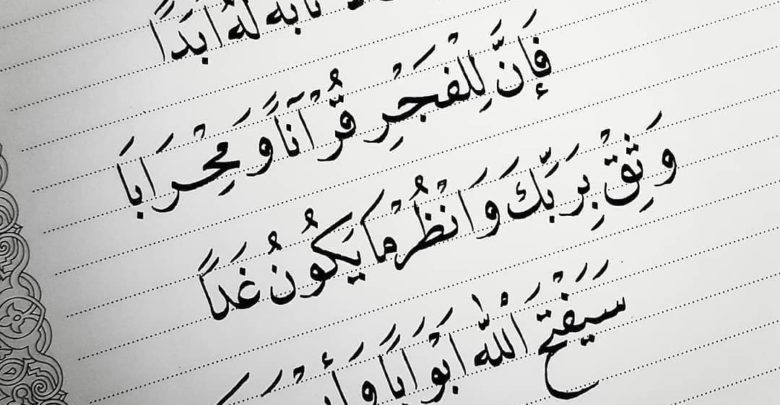 لَهُ أَبَدَا
فَإِنَّ لِلْفَجْرِ قُرْآنَاً وَمِحْرَابَا
وَثِقْ بِرَبِّكَ وَانْظُرْ مَا يَكُونُ غَدَاً
سَيَفْتَحُ اللهُ أَبْوَابَاً